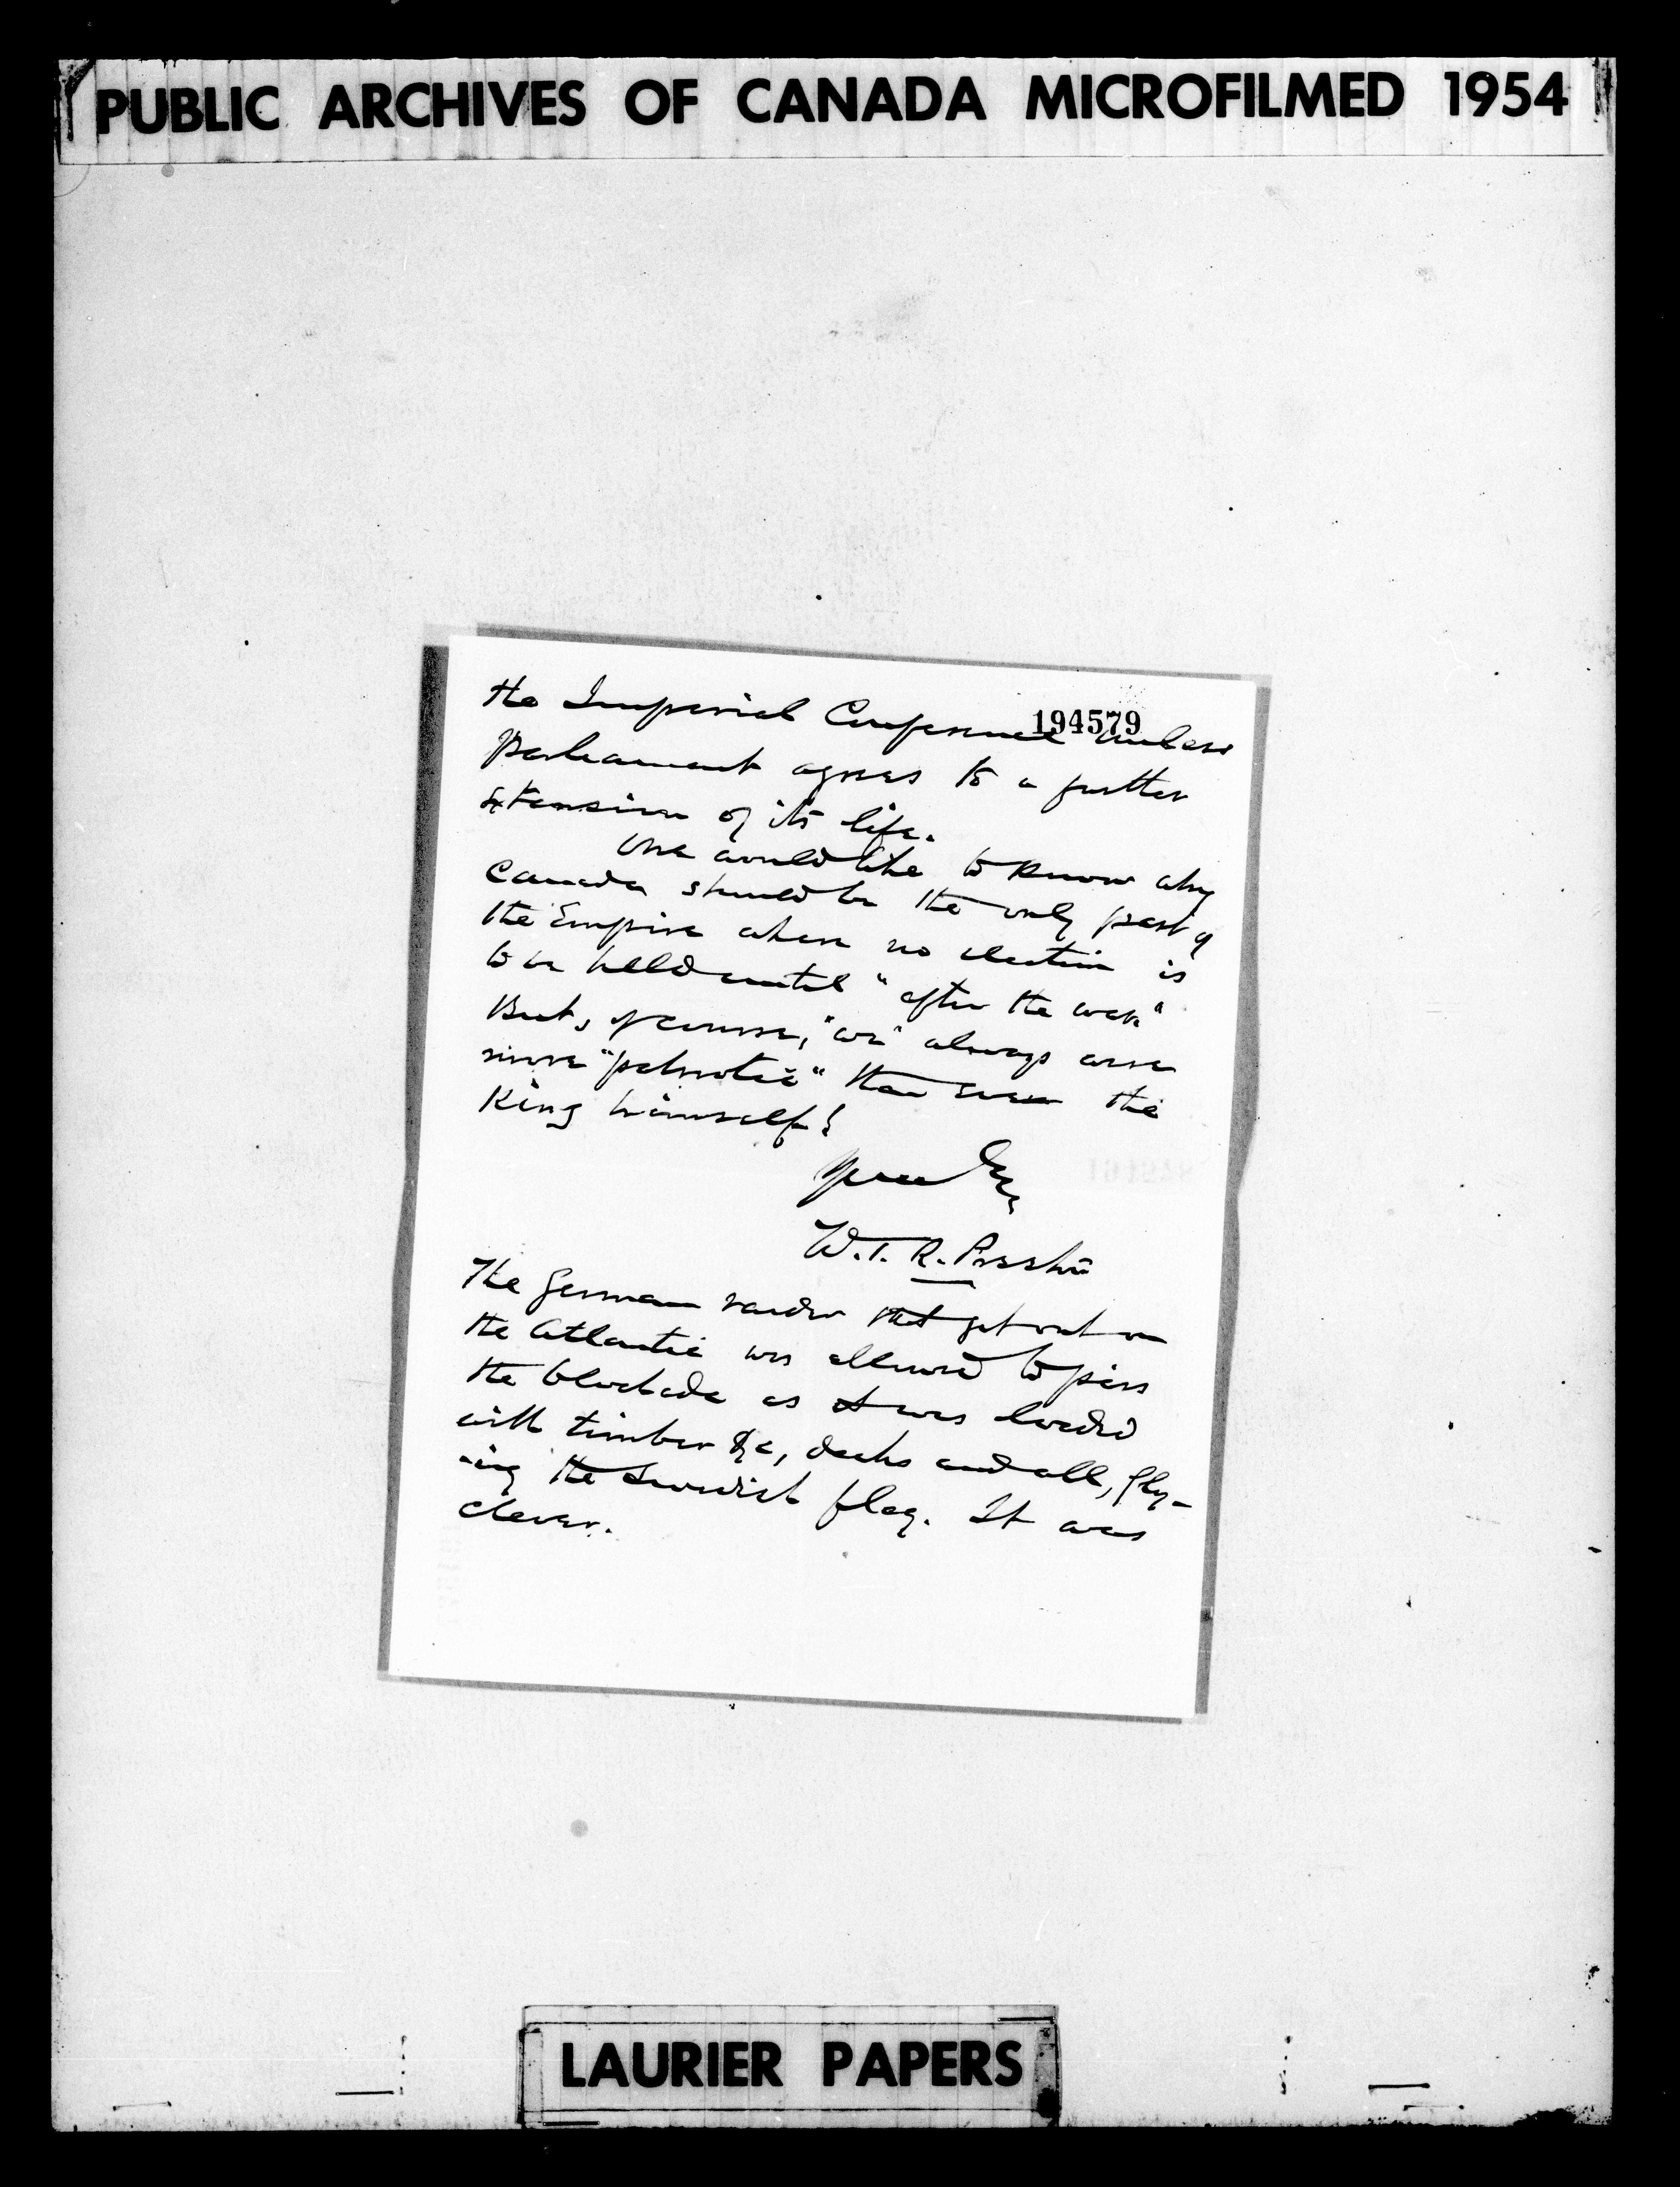 PUBLIC ARCHIVES OF CANADA MICROFILMED 1954
194579
the Imperial Conference unless
Parliament agrees to a further
extension of its life.
One would like to know why
Canada should be the only part of
the Empire where no election is
to be held until "after the war"
But, of course, "we" always were
more "patriotic" than even the
King himself!
W.T.R. Preston
The German raider that got out on
the Atlantic was allowed to pass
the blockade as it was loaded
with timber &c, decks and all, fly-
-ing the Swedish flag. It was
clever.
LAURIER PAPERS